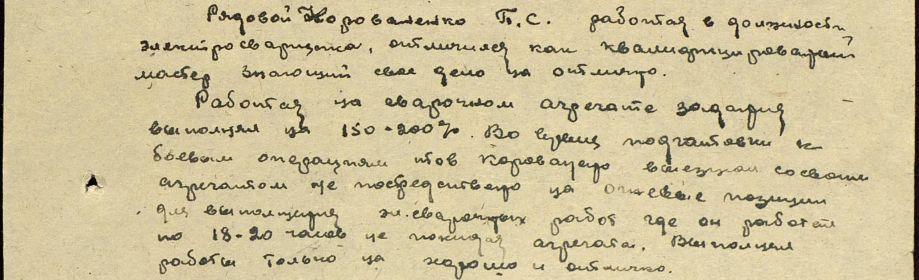 Рядовой Корованенко П.С. работая в должности
электросварщика, отличился как квалифицированный
мастер знающий свое дело на отлично.
Работая на сварочном агрегате задания
выполнял на 150-200%. Во время подготовки к
боевым операциям тов выезжал со своим
агрегатом не посредствено на огневые позиции
для выполнения эл.сварочных работ где он работал
по 18-20 часов не покидая агрегата. Выполнял
работы только на хорошо и отлично.